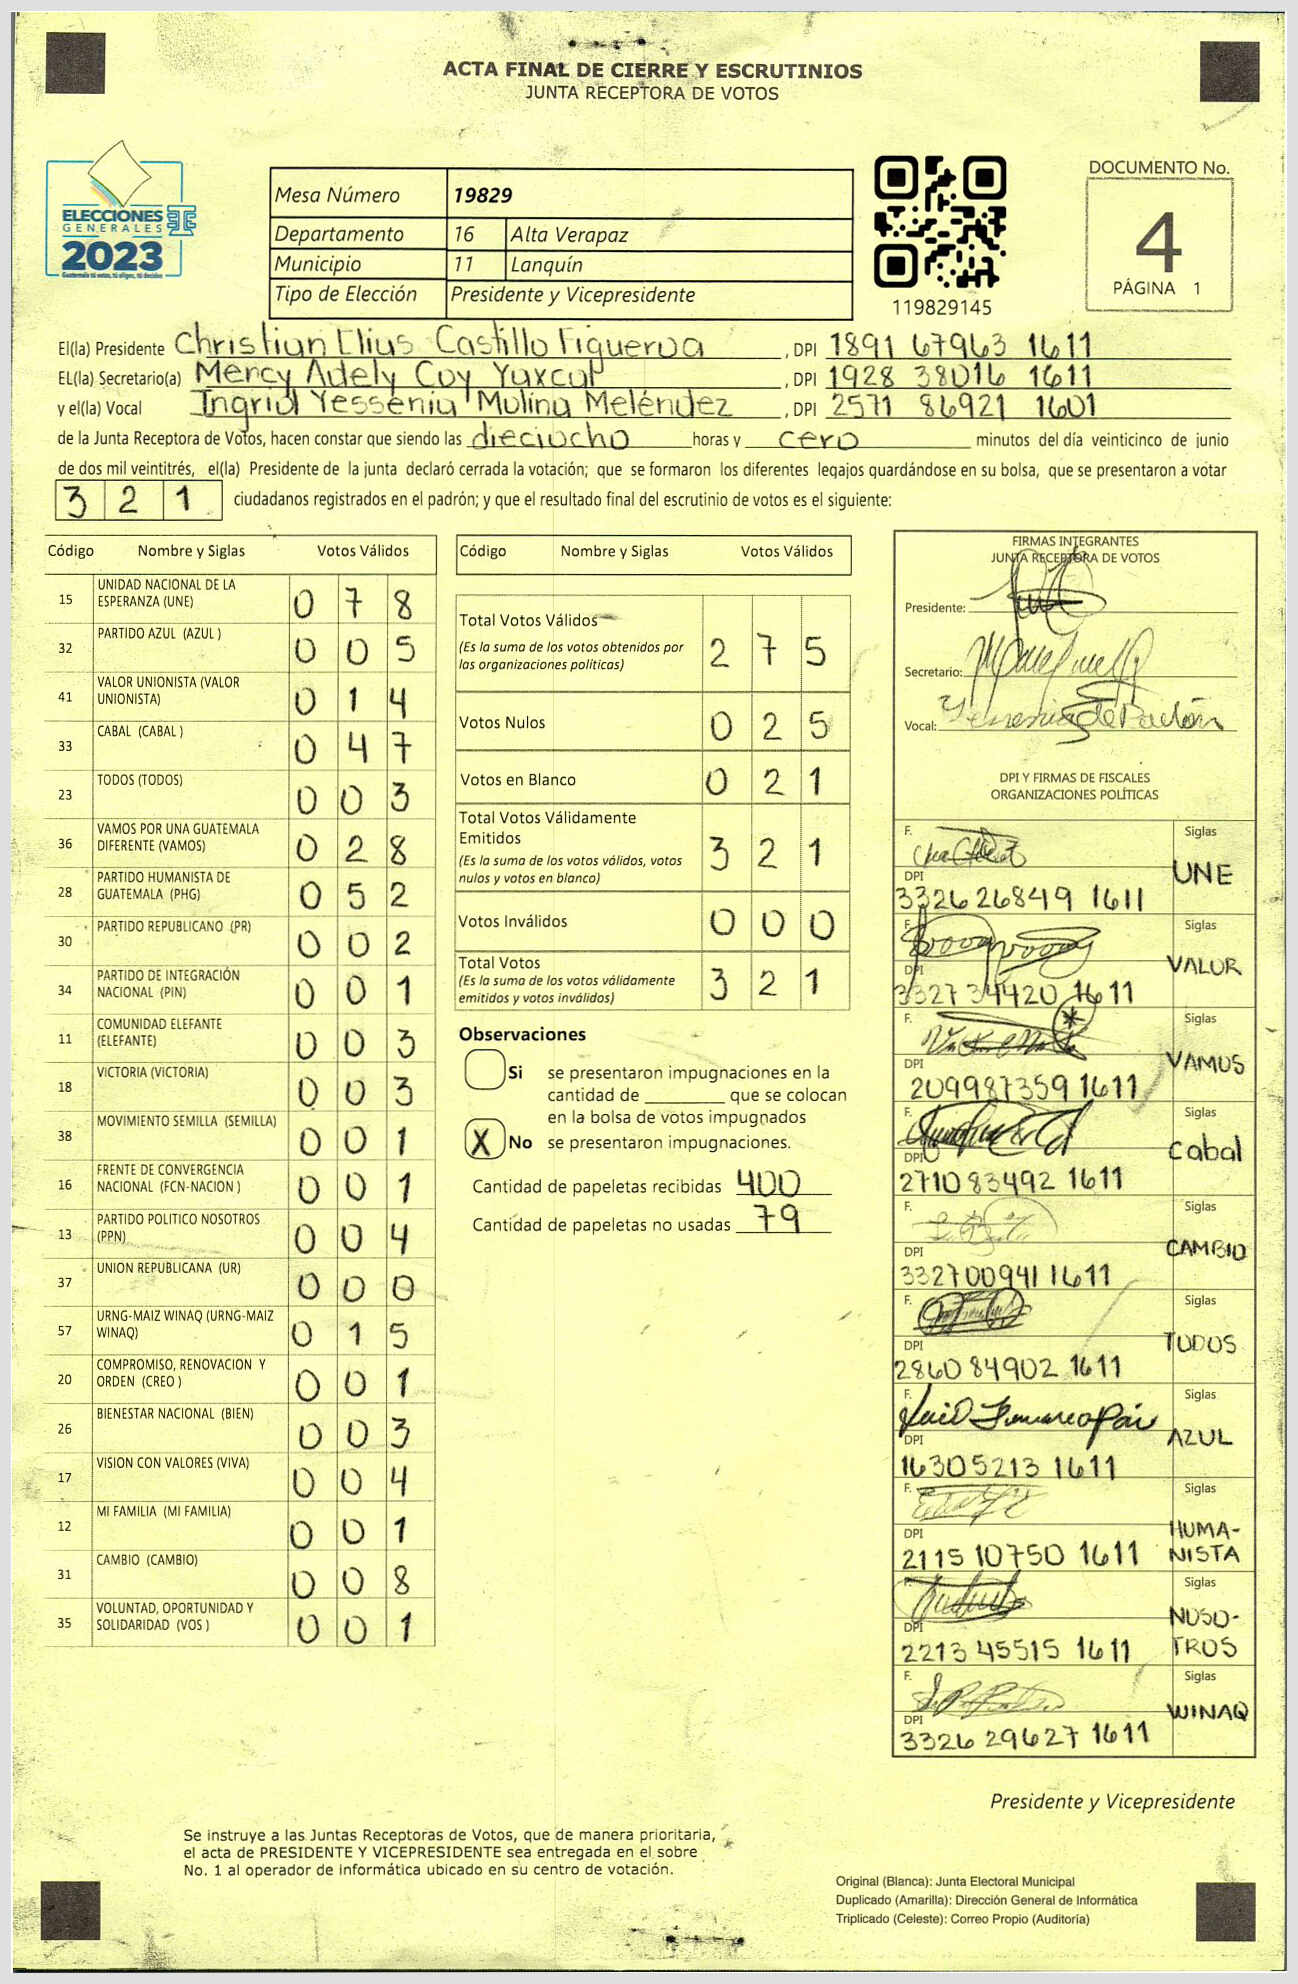 ACTA FINAL DE CIERRE Y ESCRUTINIOS
JUNTA RECEPTORA DE VOTOS
DOCUMENTO No.
4
PÁGINA 1
ELECCIONES
GENERALES
2023
Guatemala tú votas, tú eliges, tú decides
Mesa Número 19829
Departamento 16 Alta Verapaz
Municipio 11 Lanquín
Tipo de Elección Presidente y Vicepresidente
119829145
El(la) Presidente Christian Elius Castillo Figueroa , DPI 1891 67963 1611
EL(la) Secretario(a) Mercy Adely Coy Yaxcal , DPI 1928 38016 1611
y el(la) Vocal Ingrid Yessenia Molina Meléndez , DPI 2571 86921 1601
de la Junta Receptora de Votos, hacen constar que siendo las dieciocho horas y cero minutos del día veinticinco de junio
de dos mil veintitrés, el(la) Presidente de la junta declaró cerrada la votación; que se formaron los diferentes legajos guardándose en su bolsa, que se presentaron a votar
3 2 1 ciudadanos registrados en el padrón; y que el resultado final del escrutinio de votos es el siguiente:
Código Nombre y Siglas Votos Válidos
15 UNIDAD NACIONAL DE LA
ESPERANZA (UNE) 0 7 8
32 PARTIDO AZUL (AZUL ) 0 0 5
41 VALOR UNIONISTA (VALOR
UNIONISTA) 0 1 4
33 CABAL (CABAL ) 0 4 7
23 TODOS (TODOS) 0 0 3
36 VAMOS POR UNA GUATEMALA
DIFERENTE (VAMOS) 0 2 8
28 PARTIDO HUMANISTA DE
GUATEMALA (PHG) 0 5 2
30 PARTIDO REPUBLICANO (PR) 0 0 2
34 PARTIDO DE INTEGRACIÓN
NACIONAL (PIN) 0 0 1
11 COMUNIDAD ELEFANTE
(ELEFANTE) 0 0 3
18 VICTORIA (VICTORIA) 0 0 3
38 MOVIMIENTO SEMILLA (SEMILLA) 0 0 1
16 FRENTE DE CONVERGENCIA
NACIONAL (FCN-NACION ) 0 0 1
13 PARTIDO POLITICO NOSOTROS
(PPN) 0 0 4
37 UNION REPUBLICANA (UR) 0 0 0
57 URNG-MAIZ WINAQ (URNG-MAIZ
WINAQ) 0 1 5
20 COMPROMISO, RENOVACION Y
ORDEN (CREO ) 0 0 1
26 BIENESTAR NACIONAL (BIEN) 0 0 3
17 VISION CON VALORES (VIVA) 0 0 4
12 MI FAMILIA (MI FAMILIA) 0 0 1
31 CAMBIO (CAMBIO) 0 0 8
35 VOLUNTAD, OPORTUNIDAD Y
SOLIDARIDAD (VOS ) 0 0 1
Código Nombre y Siglas Votos Válidos
Total Votos Válidos
(Es la suma de los votos obtenidos por
las organizaciones políticas) 2 7 5
Votos Nulos 0 2 5
Votos en Blanco 0 2 1
Total Votos Válidamente
Emitidos
(Es la suma de los votos válidos, votos
nulos y votos en blanco) 3 2 1
Votos Inválidos 0 0 0
Total Votos
(Es la suma de los votos válidamente
emitidos y votos inválidos) 3 2 1
Observaciones
Si se presentaron impugnaciones en la
cantidad de ________ que se colocan
en la bolsa de votos impugnados
X No se presentaron impugnaciones.
Cantidad de papeletas recibidas 400
Cantidad de papeletas no usadas 79
FIRMAS INTEGRANTES
JUNTA RECEPTORA DE VOTOS
Presidente:
Secretario:
Vocal:
DPI Y FIRMAS DE FISCALES
ORGANIZACIONES POLÍTICAS
F. Siglas
UNE
DPI
3326 26849 1611
F. Siglas
VALOR
DPI
3327 34420 1611
F. Siglas
VAMOS
DPI
2099 87359 1611
F. Siglas
Cabal
DPI
2710 83492 1611
F. Siglas
CAMBIO
DPI
3327 00941 1611
F. Siglas
TODOS
DPI
2860 84902 1611
F. Siglas
AZUL
DPI
1630 5213 1611
F. Siglas
HUMA-
NISTA
DPI
2115 10750 1611
F. Siglas
NOSO-
TROS
DPI
2213 45515 1611
F. Siglas
WINAQ
DPI
3326 29627 1611
Presidente y Vicepresidente
Se instruye a las Juntas Receptoras de Votos, que de manera prioritaria,
el acta de PRESIDENTE Y VICEPRESIDENTE sea entregada en el sobre
No. 1 al operador de informática ubicado en su centro de votación.
Original (Blanca): Junta Electoral Municipal
Duplicado (Amarilla): Dirección General de Informática
Triplicado (Celeste): Correo Propio (Auditoría)